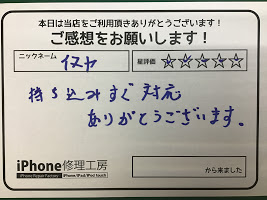 本日は当店をご利用頂きありがとうございます!
ご感想をお願いします!
ニックネーム
イヌヤ
星評価 ☆☆☆☆☆
持ち込みすぐ対応
ありがとうございます。
iPhone修理工房
iPhone Repair Factory iPhone/iPad/iPod touch
から来ました